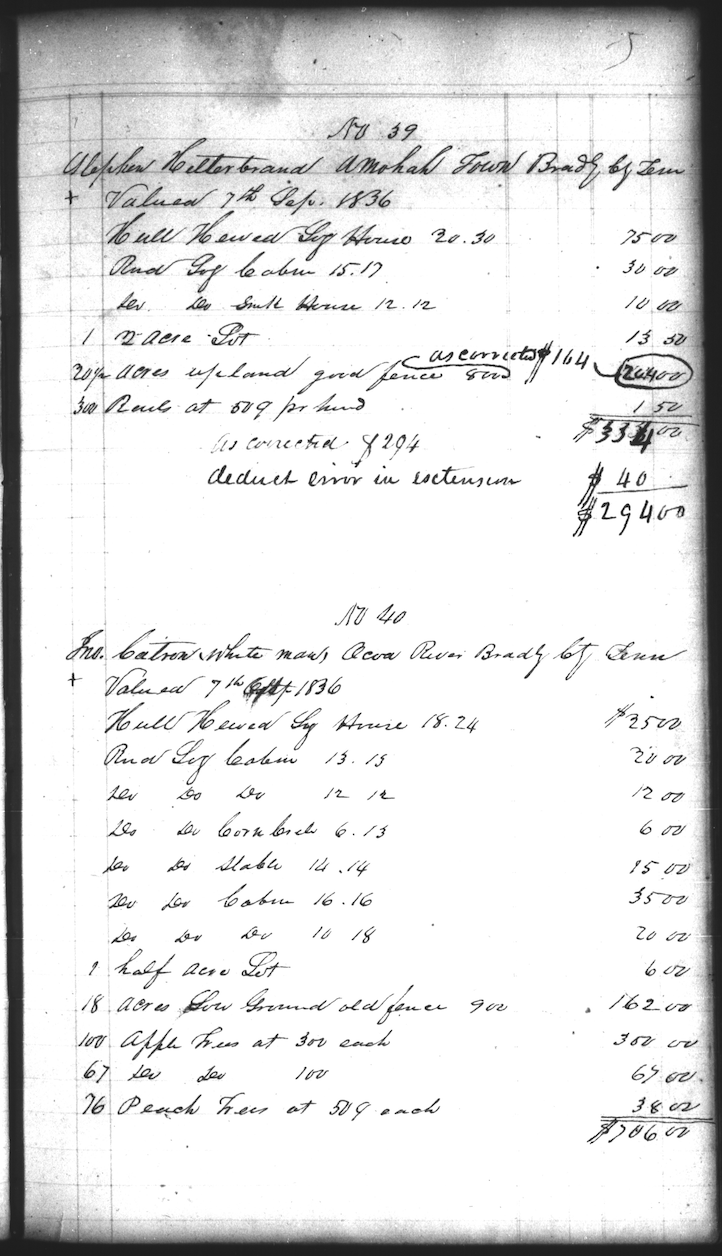 5
No 39
Stephen Hilterbrand Amohah Town Bradly Cy Tenn
+ Valued 7th Sep. 1836
Hull Hewed Log House 20.30 75 00
Rnd Log Cabin 15.17 30 00
Do. Do Smk House 12.12 10 00
1 ½ Acre Lot 13 50
as corrected $164
20½ Acres upland good fence 800 204 00
300 Rails at 50¢ pr hund 1 50
$334 00
as corrected $294
deduct error in extension $ 40
$294 00
No 40
Jno. Catron white man Ocoa River Bradly Cty Tenn
+ Valued 7th Sept 1836
Hull Hewed Log House 18.24 $25 00
Rnd Log Cabin 13.15 20 00
Do Do Do 12 12 12 00
Do Do Corn Crib 6.13 6 00
Do Do Stable 14.14 15 00
Do Do Cabin 16.16 35 00
Do Do Do 10 18 20 00
1 half Acre Lot 6 00
18 Acres Low Ground old fence 900 162 00
100 Apple Trees at 300 each 300 00
67 Do Do 100 67 00
76 Peach Trees at 50¢ each 38 00
$706 00